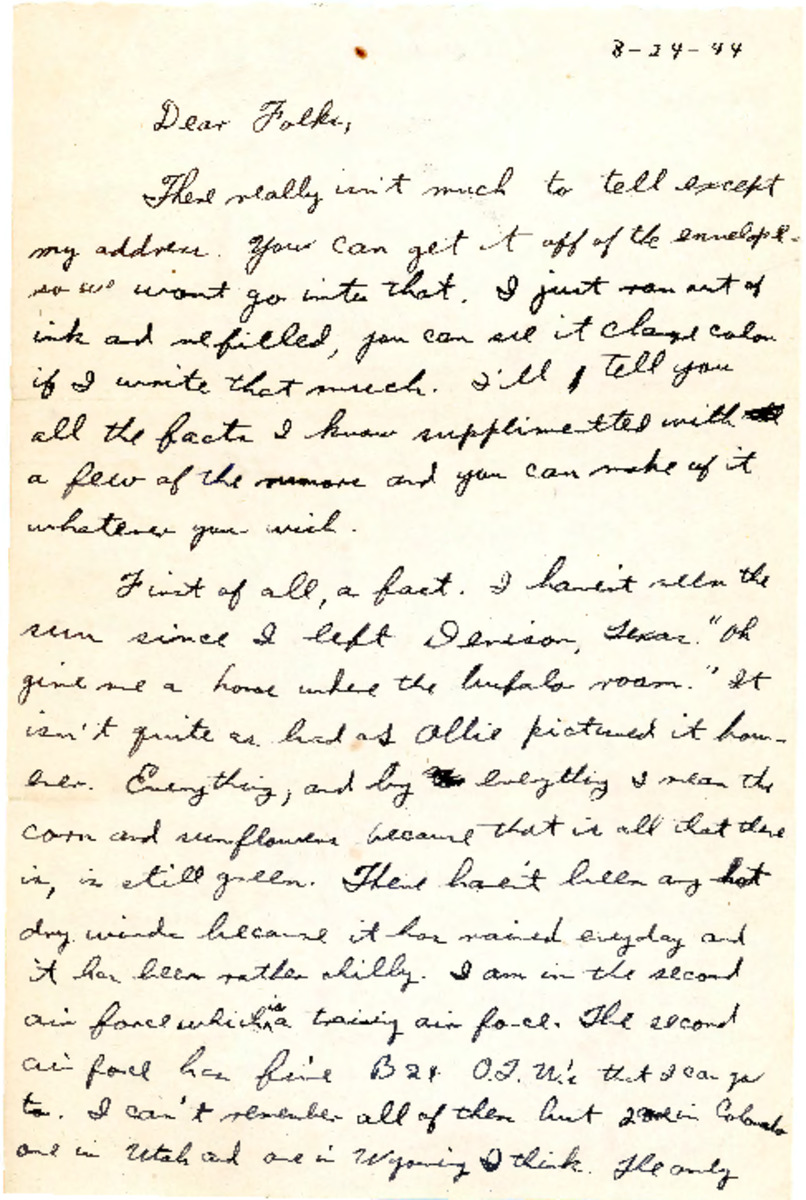 8-24-44
Dear Folks,
There really isn't much to tell except
my address. You can get it off of the envelope-
so we wont go into that. I just ran out of
ink and refilled, you can see it change color
if I write that much. I'll tell you
all the facts I know supplimented with
a few of the rumors and you can make of it
whatever you wish.
First of all, a fact. I haven't seen the
sun since I left Denison, Texas. "Oh
give me a home where the bufalo roam." It
isn't quite as bad as Ollie pictured it how-
ever. Everything, and by everything I mean the
corn and sunflowers because that is all that there
is, is still green. There haven't been any hot
dry winds because it has rained everyday and
it has been rather chilly. I am in the second
air force which is a training air force. The second
air force has five B24 O.T.U.'s that I can go
to. I can't remember all of them but 2 in Colorado
one in Utah and one in Wyoming I think. The only